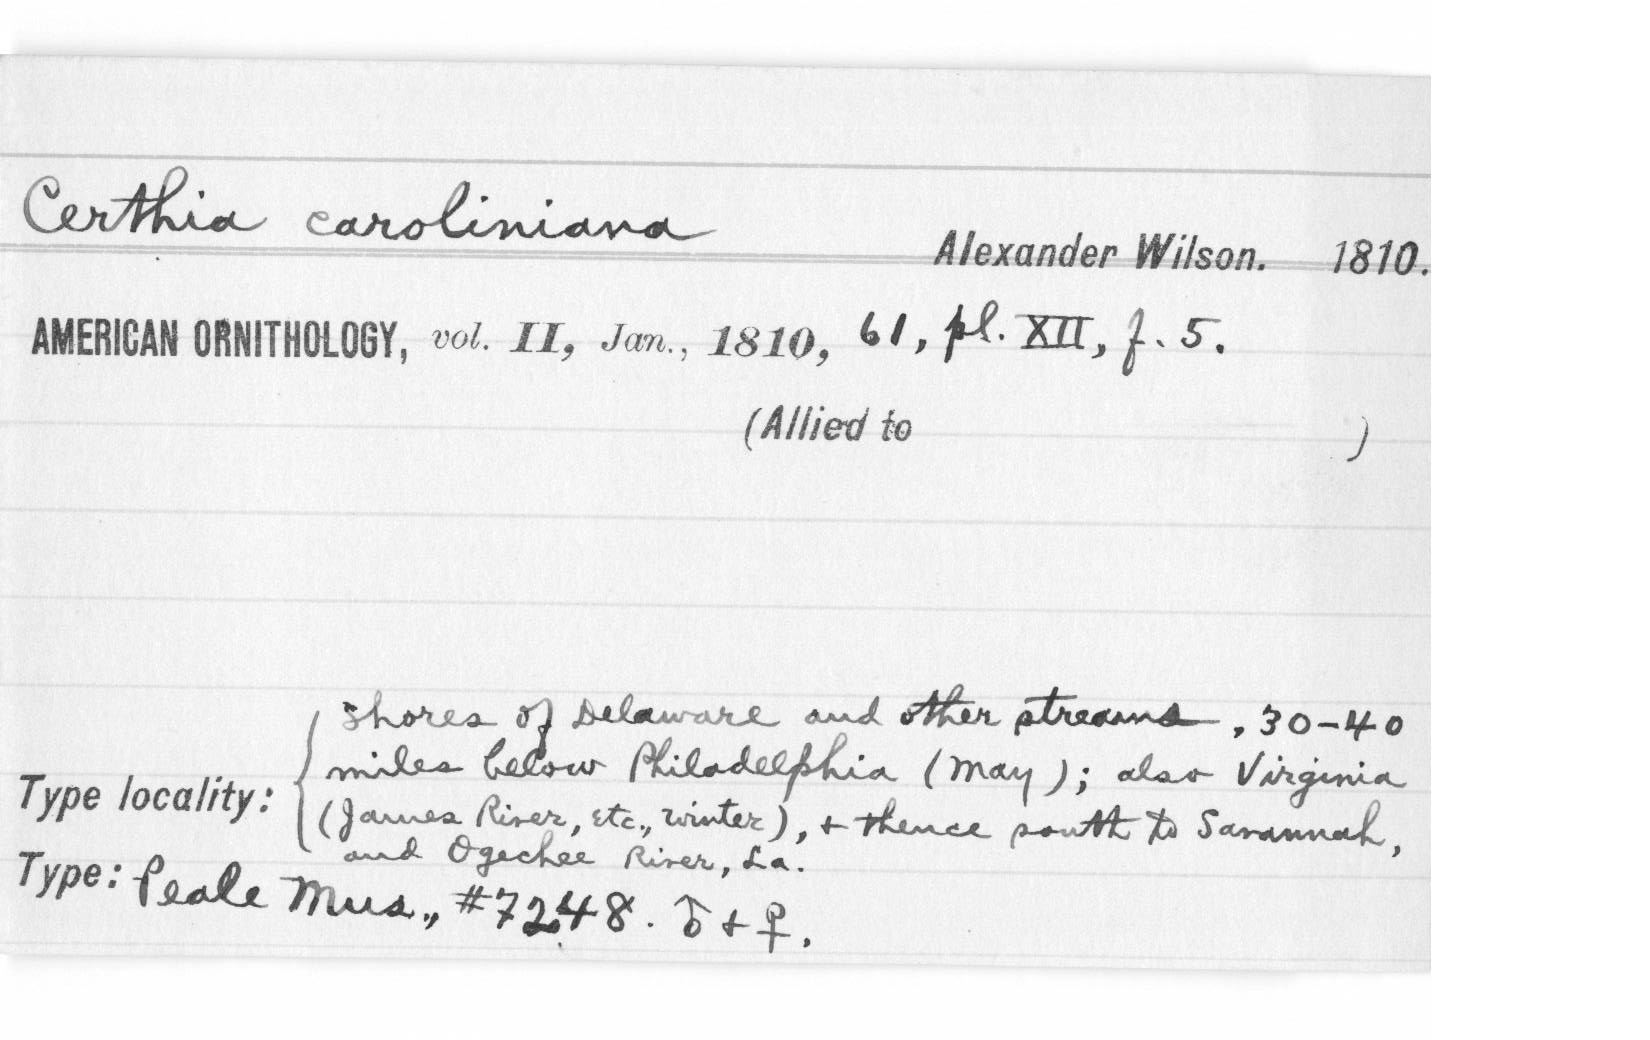 Certhia caroliniana
Alexander Wilson. 1810.
AMERICAN ORNITHOLOGY, vol. II, Jan., 1810, 61, pl. XII, f. 5.
(Allied to )
Shores of Delaware and other streams, 30-40
miles below Philadelphia (May); also Virginia
Type locality: (James River, etc., winter), + thence south to Savannah,
and Ogechee River, La.
Type: Peale Mus., #7248. ♂ + ♀.